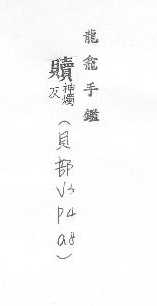 龍龕手鑑
贖神燭反(貝部V3P4a8)